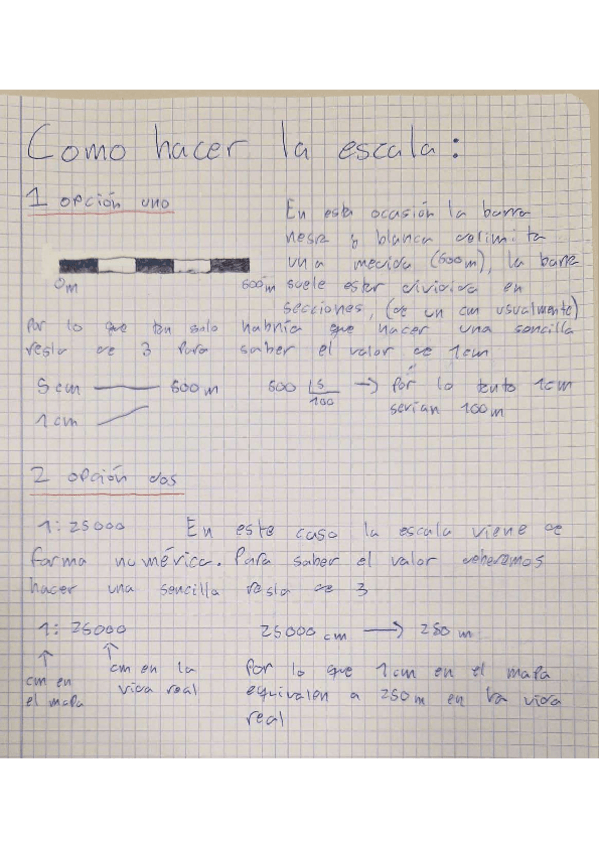 Como hacer la escala:
1 opción uno
En esta ocasión la barra
negra y blanca delimita
una medida (500m), la barra
0m 500m suele estar dividida en
secciones, (de un cm usualmente)
Por lo que tan solo habría que hacer una sencilla
regla de 3 para saber el valor de 1cm
5 cm 500 m 500 5 → Por lo tanto 1cm
100 serían 100m
1 cm
2 opción dos
1:25000 En este caso la escala viene de
forma numérica. Para saber el valor deberemos
hacer una sencilla regla de 3
1:25000 25000 cm → 250 m
↑ ↑
cm en el mapa
cm en la vida real
Por lo que 1cm en el mapa
equivalen a 250m en la vida
real